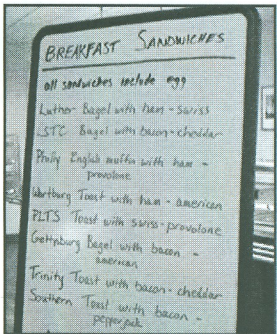 BREAKFAST SANDWICHES
all sandwiches include egg
Luther Bagel with ham - swiss
LSTC Bagel with bacon - cheddar
Philly English muffin with ham -
provolone
Wartburg Toast with ham - american
PLTS Toast with swiss - provolone
Gettysburg Bagel with bacon -
american
Trinity Toast with bacon - cheddar
Southern Toast with bacon -
pepperjack